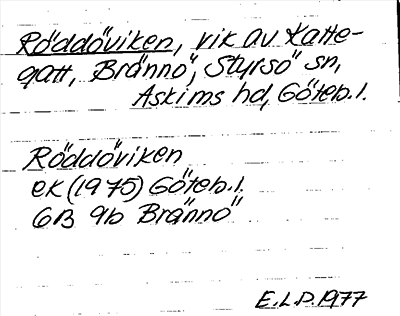 Röddöviken, vik av Katte-
gatt, Brännö, Styrsö sn,
Askims hd, Göteb.l.
Röddöviken
ek (1975) Göteb.l.
6B 9b Brännö
E.L.P. 1977